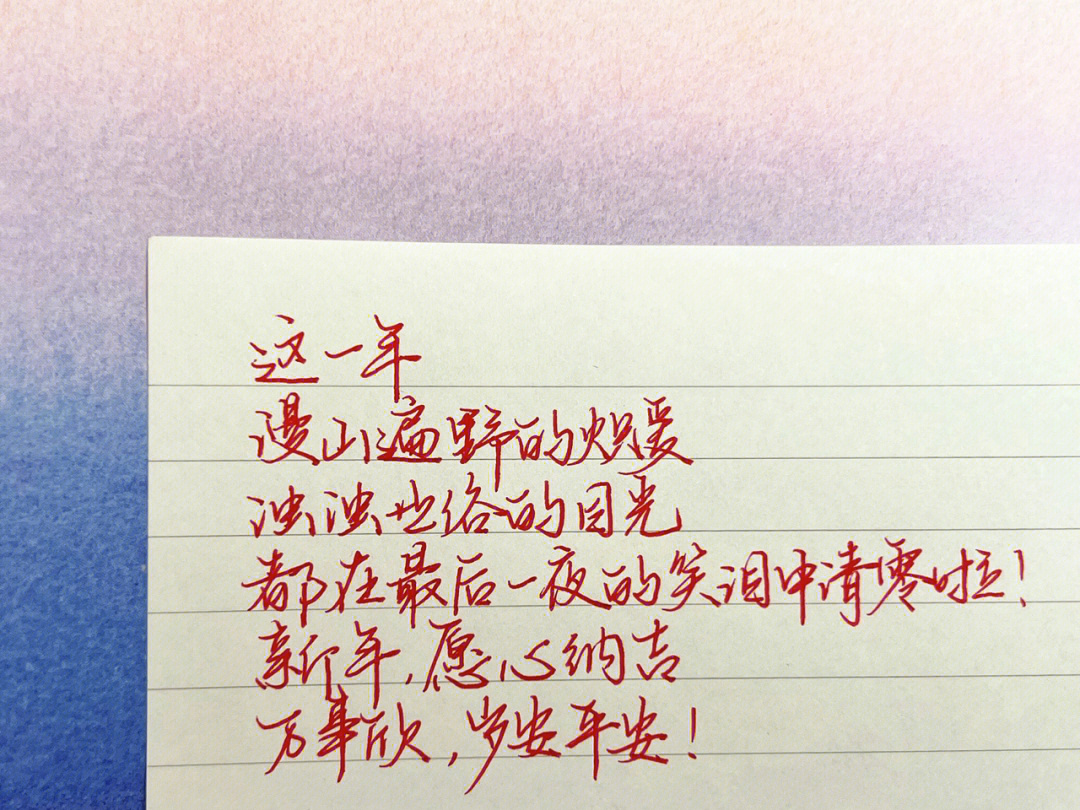 这一年
漫山遍野的炽爱
浊浊世俗的目光
都在最后一夜的笑泪中清零啦！
新年，愿心纳吉
万事欣，岁安平安！